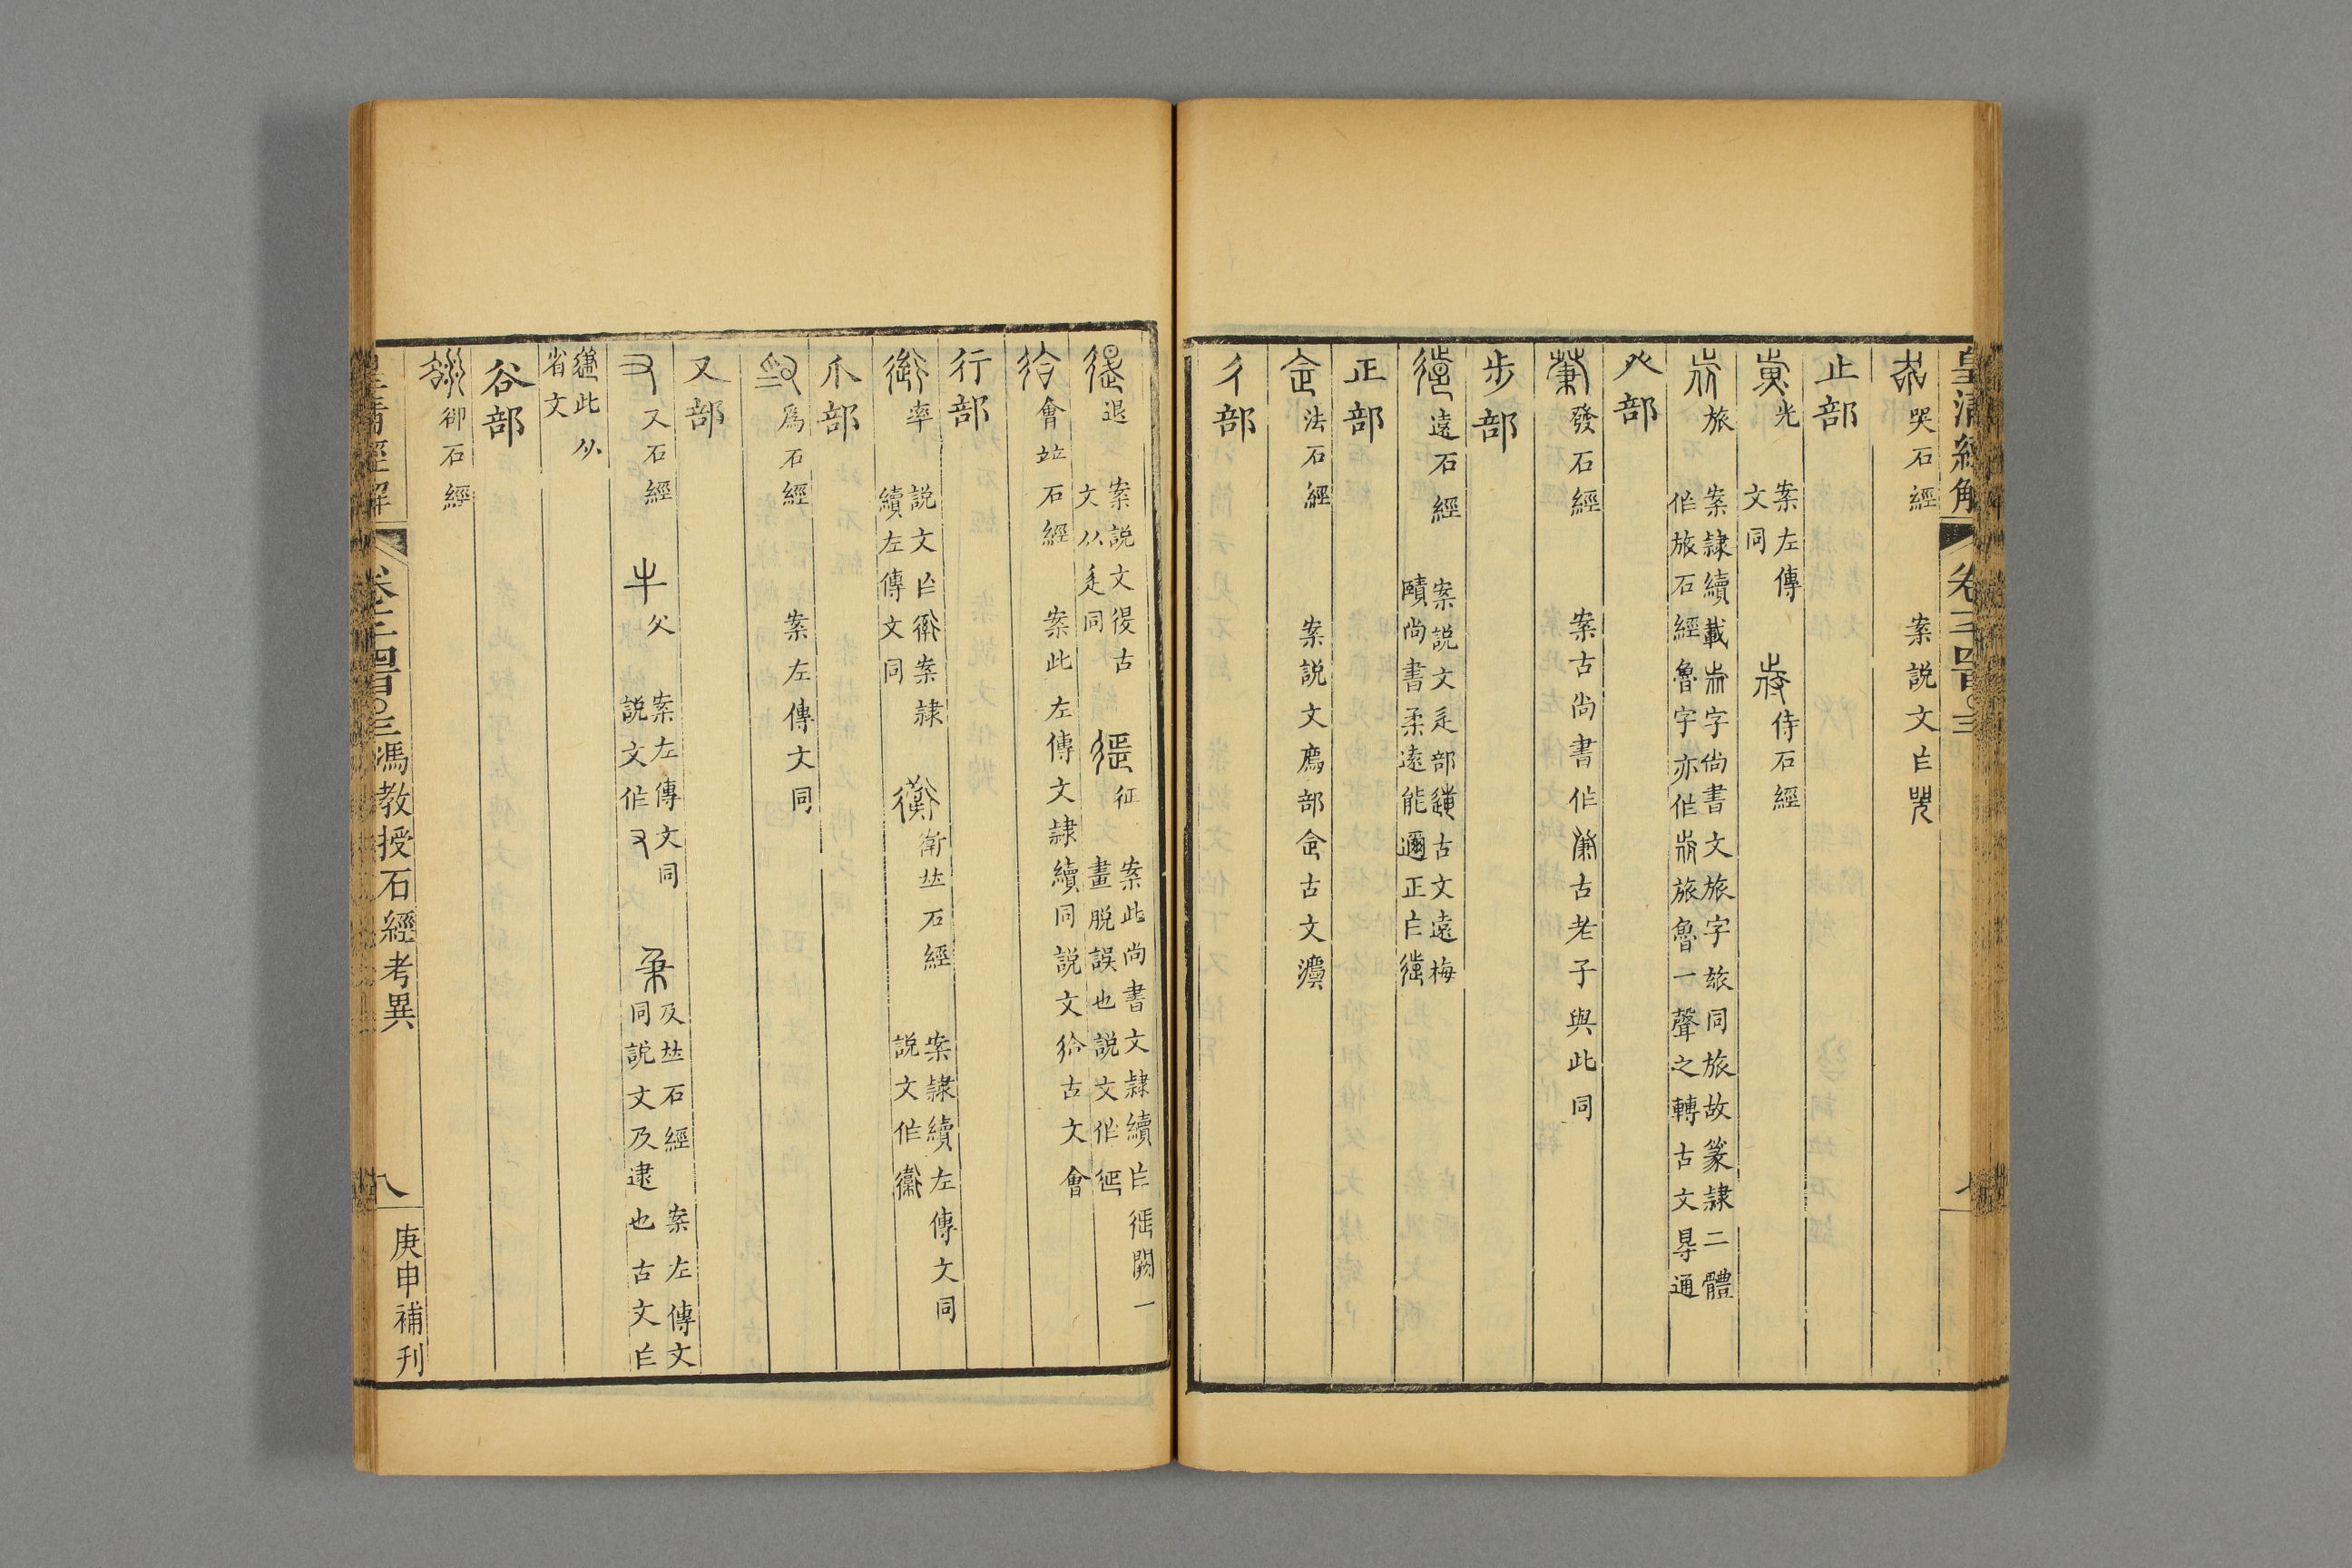 皇清經解 卷千四百〇三
哭石經 案說文㠯
止部
光 案左傳文同 侍石經
旅 案隸續載字尚書文旅字旅同旅故篆隸二體作旅石經魯字亦作旅魯一聲之轉古文㝵通
癶部
發石經 案古尚書作古老子與此同
步部
遠石經 案說文辵部古文遠梅賾尚書柔遠能邇正㠯
正部
法石經 案說文廌部㑒古文灋
彳部
退 案說文古文从辵同 征 案此尚書文隸續㠯闕一畫脫誤也說文作
會竝石經 案此左傳文隸續同說文古文會
行部
率 說文㠯案隸續左傳文同 衛竝石經 案隸續左傳文同說文作
爪部
爲石經 案左傳文同
又部
又石經 父 案左傳文同說文作 及竝石經 案左傳文同說文及逮也古文㠯
此从省文
谷部
卻石經
皇清經解 卷千四百〇三 馮教授石經考異 八 庚申補刊